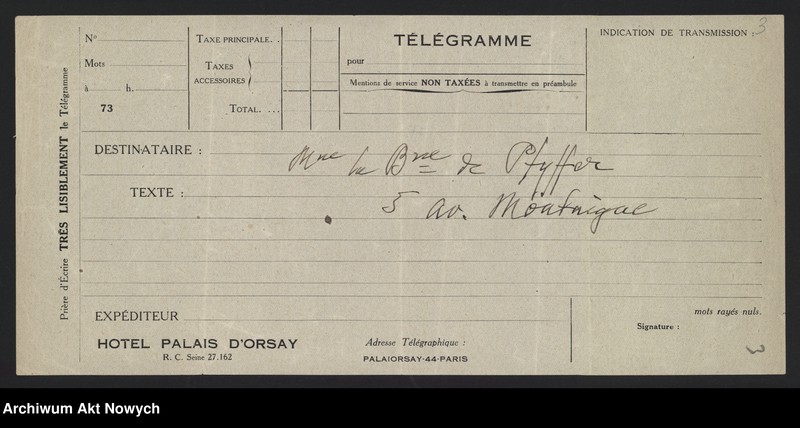 Nº
Mots
à h.
73
TAXE PRINCIPALE. .
TAXES
ACCESSOIRES
TOTAL. ...
TÉLÉGRAMME
pour
Mentions de service NON TAXÉES à transmettre en préambule
INDICATION DE TRANSMISSION : 3
Prière d'Écrire TRÈS LISIBLEMENT le Télégramme
DESTINATAIRE : Mme la Bnne de Pfyffer
TEXTE : 5 av. Montaigne
EXPÉDITEUR
HOTEL PALAIS D'ORSAY
R. C. Seine 27.162
Adresse Télégraphique :
PALAIORSAY-44-PARIS
mots rayés nuls.
Signature :
3
Archiwum Akt Nowych